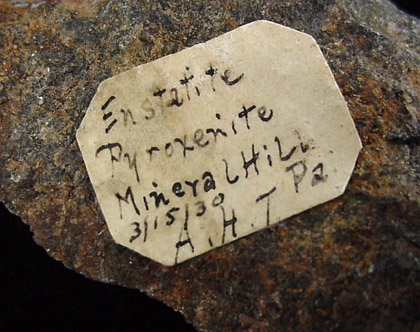 Enstatite
Pyroxenite
Mineral Hill
Pa.
3/15/30
A.H.T